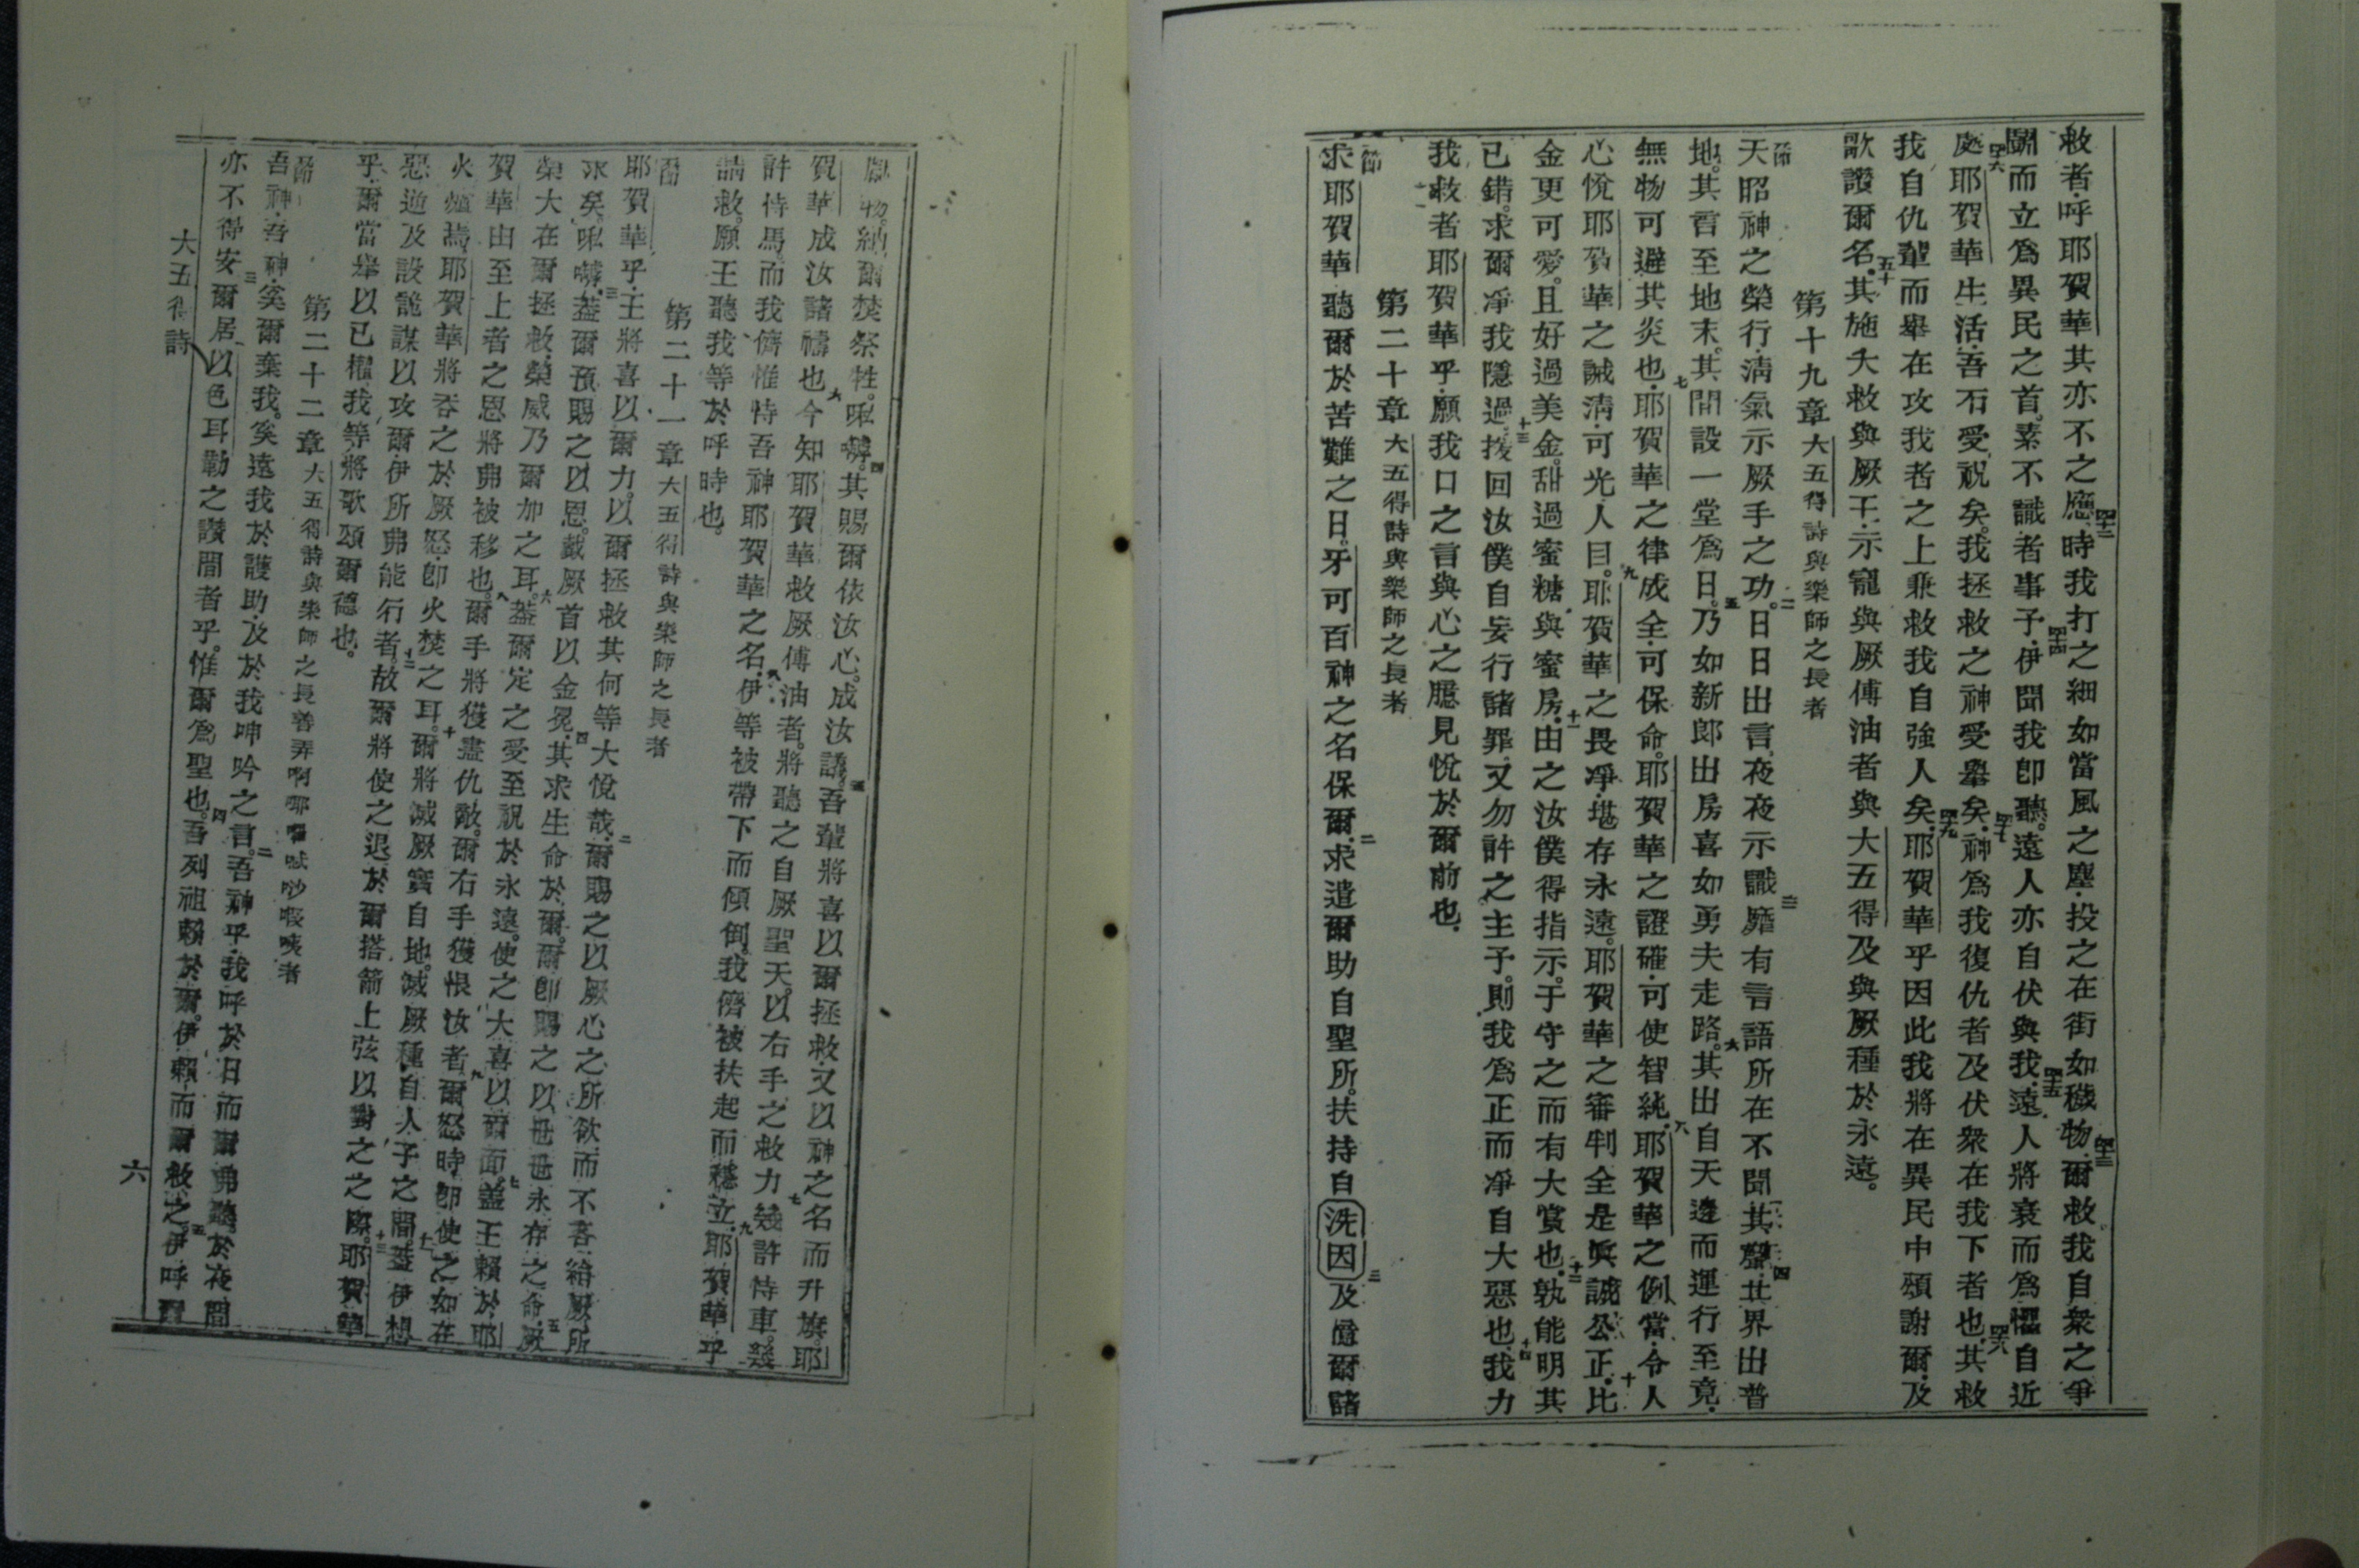 救者・呼耶賀華其亦不之應・四二時我打之細如當風之塵・投之在街如穢物・四三爾救我自衆之爭
鬬而立為異民之首・素不識者事予・四四伊聞我卽聽。遠人亦自伏與我・四五遠人將衰而為懼自近
處・四六耶賀華生活・吾石受祝矣・我拯救之神受舉矣・四七神為我復仇者及伏衆在我下者也・四八其救
我自仇輩而舉在攻我者之上兼救我自強人矣・四九耶賀華乎因此我將在異民中頌謝爾・及
歌讚爾名・五十其施大救與厥王・示寵與厥傅油者與大五得及與厥種於永遠。
第十九章 大五得詩與樂師之長者
節天昭神之榮行・清氣示厥手之功。二日日出言・夜夜示識・三靡有言語所在不聞其聲・四其界出普
地。其言至地末。其間設一堂為日。五乃如新郎出房喜如勇夫走路。六其出自天邊而運行至竟・
無物可避其炎也・七耶賀華之律成全・可保命。耶賀華之證確・可使智純・八耶賀華之例當・令人
心悅耶賀華之誡清・可光人目。九耶賀華之畏凈・堪存永遠。耶賀華之審判全是眞誠公正・十比
金更可愛。且好過美金。甜過蜜糖與蜜房・十一由之汝僕得指示。于守之而有大賞也・十二孰能明其
已錯。求爾凈我隱過・十三援回汝僕自妄行諸罪・又勿許之主予。則我為正而凈自大惡也・十四我力
我救者耶賀華乎・願我口之言與心之臆見悅於爾前也・
第二十章 大五得詩與樂師之長者
節求耶賀華聽爾於苦難之日。牙可百神之名保爾・二求遣爾助自聖所。扶持自洗因・三及憶爾諸
物。納爾焚祭牲。㗔嚹。四其賜爾依汝心。成汝議。五吾輩將喜以爾拯救・又以神之名而升旗。耶
賀華成汝諸禱也・六今知耶賀華救厥傅油者。將聽之自厥聖天。以右手之救力・七幾許恃車。幾
許恃馬。而我儕惟恃吾神耶賀華之名・八伊等被帶下而傾倒。我儕被扶起而穩立・九耶賀華乎
請救。願王聽我等於呼時也。
第二十一章 大五得詩與樂師之長者
節耶賀華乎・王將喜以爾力。以爾拯救其何等大悅哉・二爾賜之以厥心之所欲・而不吝給厥所
求矣。㗔嚹・三蓋爾預賜之以恩。戴厥首以金冕・四其求生命於爾。爾卽賜之以世世永存之命・五厥
榮大在爾拯救・榮威乃爾加之耳。六蓋爾定之受至祝於永遠。使之大喜以爾面。七蓋王賴於耶
賀華由至上者之恩將弗被移也。八爾手將獲盡仇敵。爾右手獲恨汝者・九爾怒時卽使之如在
火爐焉・耶賀華將吞之於厥怒・卽火焚之耳。十爾將滅厥實自地。滅厥種自人子之間。十一蓋伊想
惡逆及設詭謀以攻爾・伊所弗能行者。十二故爾將使之退・於爾搭箭上弦以對之之際。十三耶賀華
乎・爾當舉以己權・我等將歌頌爾德也。
第二十二章 大五得詩與樂師之長善弄者
節吾神・吾神・奚爾棄我。奚遠我於護助・及於我呻吟之言。二吾神乎・我呼於日而爾弗聽・於夜間
亦不得安・三爾居以色耳勒之讚間者乎。惟爾為聖也。四吾列祖賴於爾。伊賴・而爾救之。五伊呼
大五得詩
六